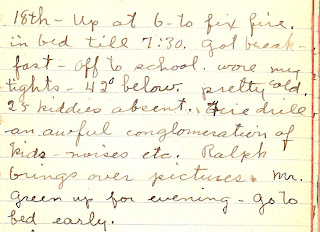 18th - Up at 6 - to fix fire.
in bed till 7:30. Got break-
fast - off to school. wore my
tights - 42° below. pretty cold.
25 kiddies absent. Fire drill
- an awful conglomeration of
kids - noises etc. Ralph
brings over pictures. Mr.
Green up for evening - Go to
bed early.